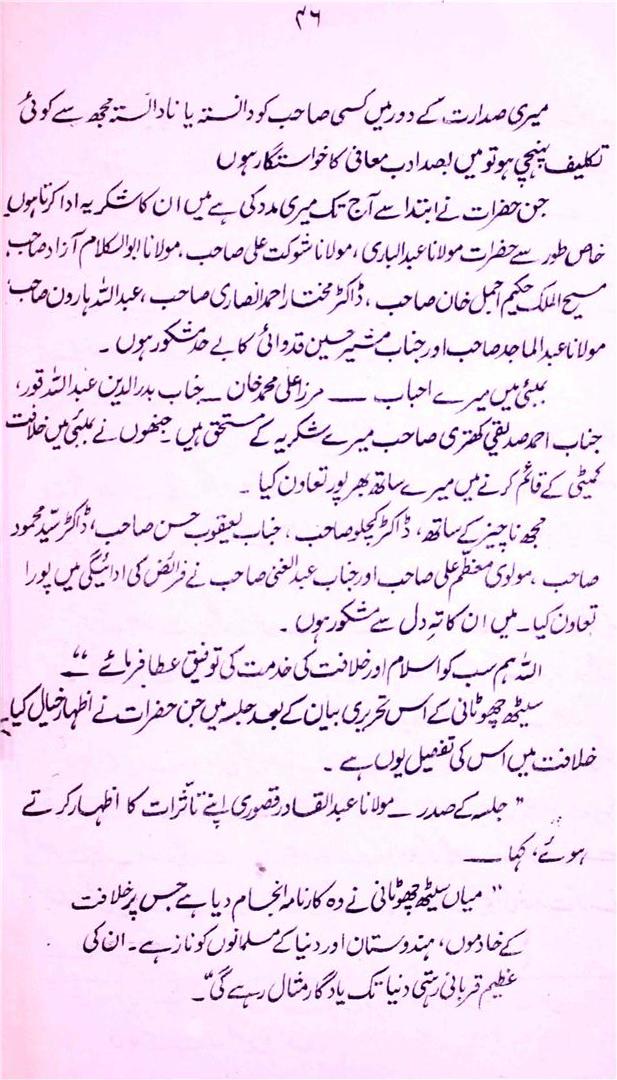 ۴۶
میری صدارت کے دور میں کسی صاحب کو دانستہ یا نادانستہ مجھ سے کوئی
تکلیف پہنچی ہو تو میں بصد ادب معافی کا خواستگار ہوں
جن حضرات نے ابتدا سے آج تک میری مدد کی ہے میں ان کا شکریہ ادا کرتا ہوں
خاص طور سے حضرات مولانا عبدالباری، مولانا شوکت علی صاحب، مولانا ابوالکلام آزاد صاحب
مسیح الملک حکیم اجمل خان صاحب، ڈاکٹر مختار احمد انصاری صاحب، عبداللہ ہارون صاحب
مولانا عبدالماجد صاحب اور جناب مشیر حسین قدوائی کا بے حد مشکور ہوں۔
بمبئی میں میرے احباب ــــ مرزا علی محمد خان ـ جناب بدرالدین عبداللہ قور،
جناب احمد صدیقی کھتری صاحب میرے شکریہ کے مستحق ہیں جنھوں نے بمبئی میں خلافت
کمیٹی کے قائم کرنے میں میرے ساتھ بھرپور تعاون کیا۔
مجھ ناچیز کے ساتھ، ڈاکٹر کچلو صاحب، جناب یعقوب حسن صاحب، ڈاکٹر سیّد محمود
صاحب، مولوی معظّم علی صاحب اور جناب عبدالغنی صاحب نے فرائض کی ادائیگی میں پورا
تعاون کیا۔ میں ان کا تہِ دل سے مشکور ہوں۔
اللہ ہم سب کو اسلام اور خلافت کی خدمت کی توفیق عطا فرمائے ۔"
سیٹھ چھوٹانی کے اس تحریری بیان کے بعد جلسہ میں جن حضرات نے اظہار خیال کیا۔
خلافت میں اس کی تفصیل یوں ہے۔
" جلسہ کے صدر ـ مولانا عبدالقادر قصوری اپنے تاثّرات کا اظہار کرتے
ہوئے، کہا ــــ
" میاں سیٹھ چھوٹانی نے وہ کارنامہ انجام دیا ہے جس پر خلافت
کے خادموں، ہندوستان اور دنیا کے مسلمانوں کو ناز ہے۔ ان کی
عظیم قربانی رہتی دنیا تک یادگار مثال رہے گی"۔